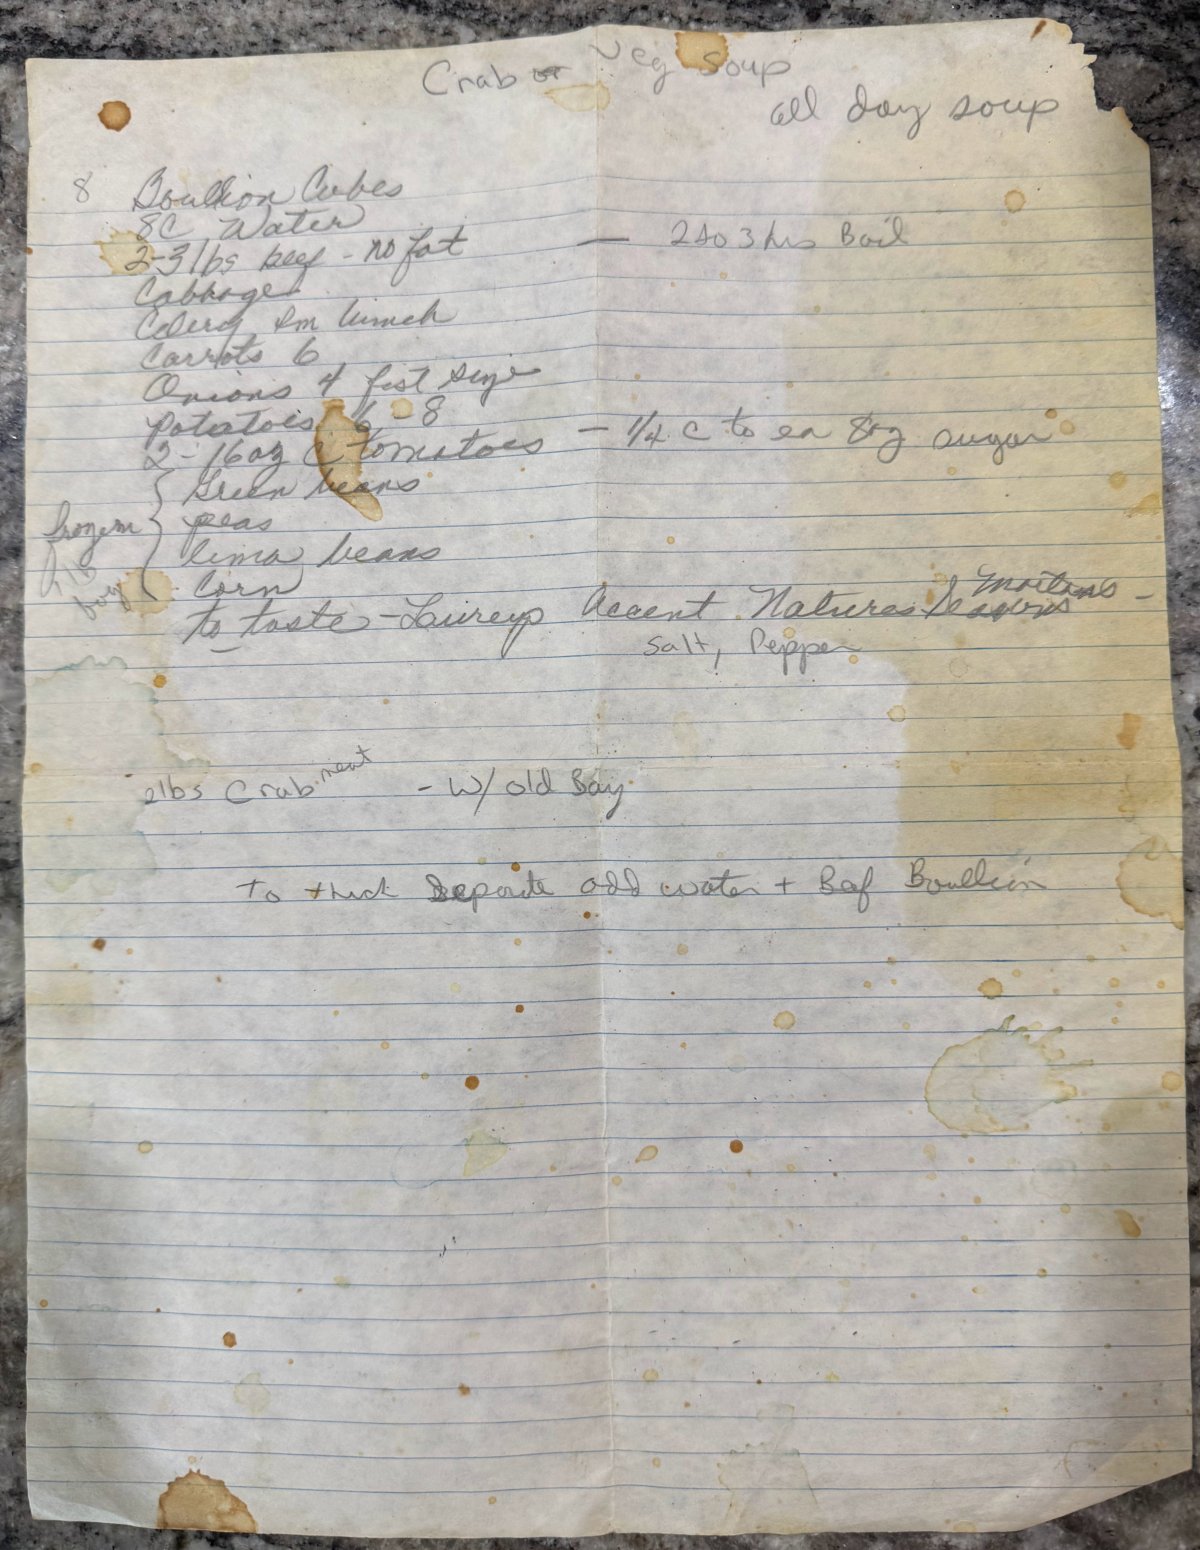 Crab or Veg Soup
all day soup
8 Boullion Cubes
8C Water
2-3 lbs beef - no fat — 2 to 3 hrs Boil
Cabbage
Celery sm bunch
Carrots 6
Onions 4 fist size
Potatoes 6-8
2 - 16oz C tomatoes — 1/4 c to ea 8oz sugar
Green beans
frozen peas
lima beans
1 lb bag Corn
to taste - Lawreys Accent Natures Seasons Mortons -
Salt, Pepper
2lbs Crab meat - w/ old Bay
To thick Seperate add water + Beef Boullion